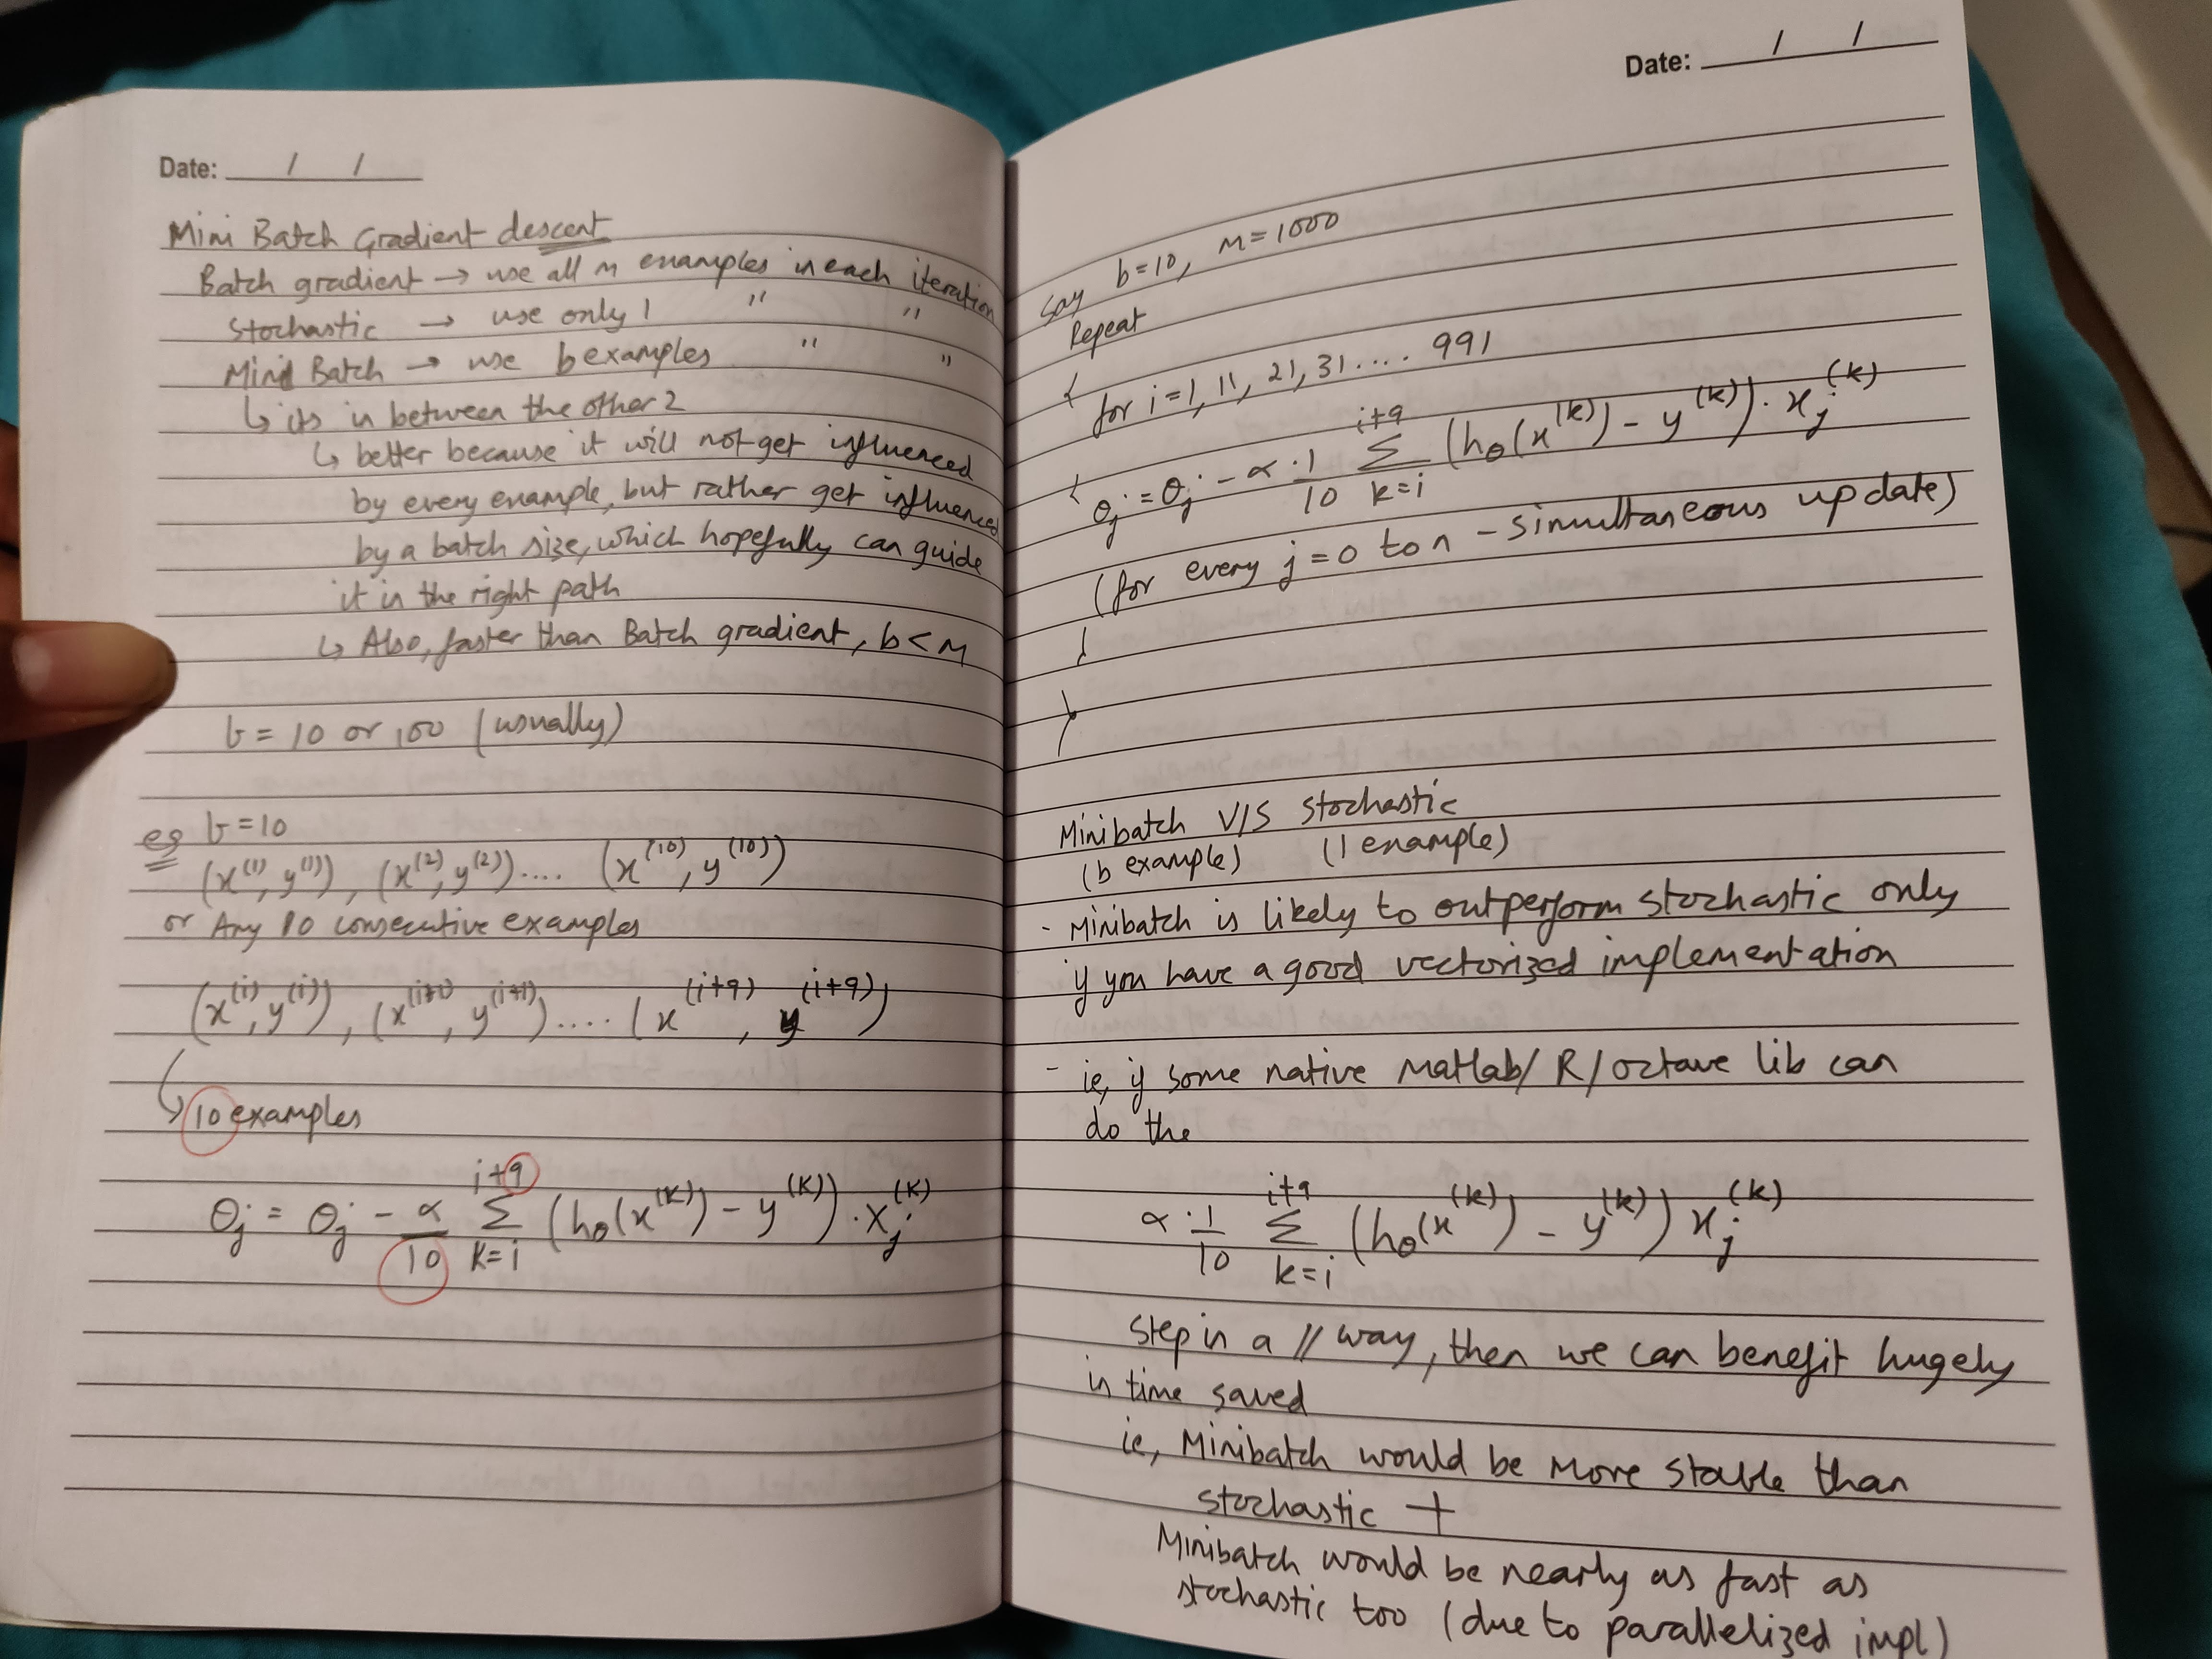 Date: / /
Mini Batch Gradient descent
Batch gradient → use all m examples in each iteration
Stochastic → use only 1 " "
Mini Batch → use b examples " "
↳ its in between the other 2
↳ better because it will not get influenced
by every example, but rather get influenced
by a batch size, which hopefully can guide
it in the right path
↳ Also, faster than Batch gradient, b < m
b = 10 or 100 (usually)
eg b = 10
(x^(1), y^(1)), (x^(2), y^(2)).... (x^(10), y^(10))
or Any 10 consecutive examples
(x^(i), y^(i)), (x^(i+1), y^(i+1)).... (x^(i+9), y^(i+9))
↳ 10 examples
θj = θj - α/10 Σ_{k=i}^{i+9} (hθ(x^(k)) - y^(k)) . xj^(k)
Date: / /
Say b=10, m=1000
Repeat
{
for i=1, 11, 21, 31.... 991
{ θj = θj - α . 1/10 Σ_{k=i}^{i+9} (hθ(x^(k)) - y^(k)) . xj^(k)
(for every j=0 to n - simultaneous update)
}
}
Minibatch V/S Stochastic
(b example) (1 example)
- Minibatch is likely to outperform stochastic only
if you have a good vectorized implementation
- ie, if some native Matlab/R/octave lib can
do the
α . 1/10 Σ_{k=i}^{i+9} (hθ(x^(k)) - y^(k)) xj^(k)
step in a // way, then we can benefit hugely
in time saved
ie, Minibatch would be more stable than
stochastic +
Minibatch would be nearly as fast as
stochastic too (due to parallelized impl)